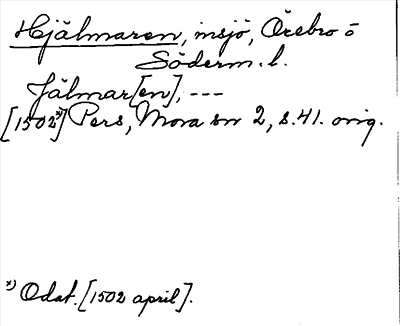 Hjälmaren, insjö, Örebro o
Söderm. l.
Jälmar[en], ---
[1502*)] Pers, Mora sn 2, s. 41. orig.
*) Odat. [1502 april].